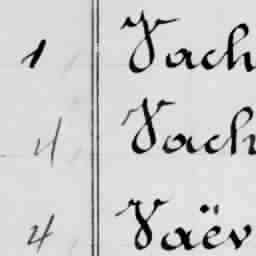 1 Vach
4 Vach
4 Vaëv